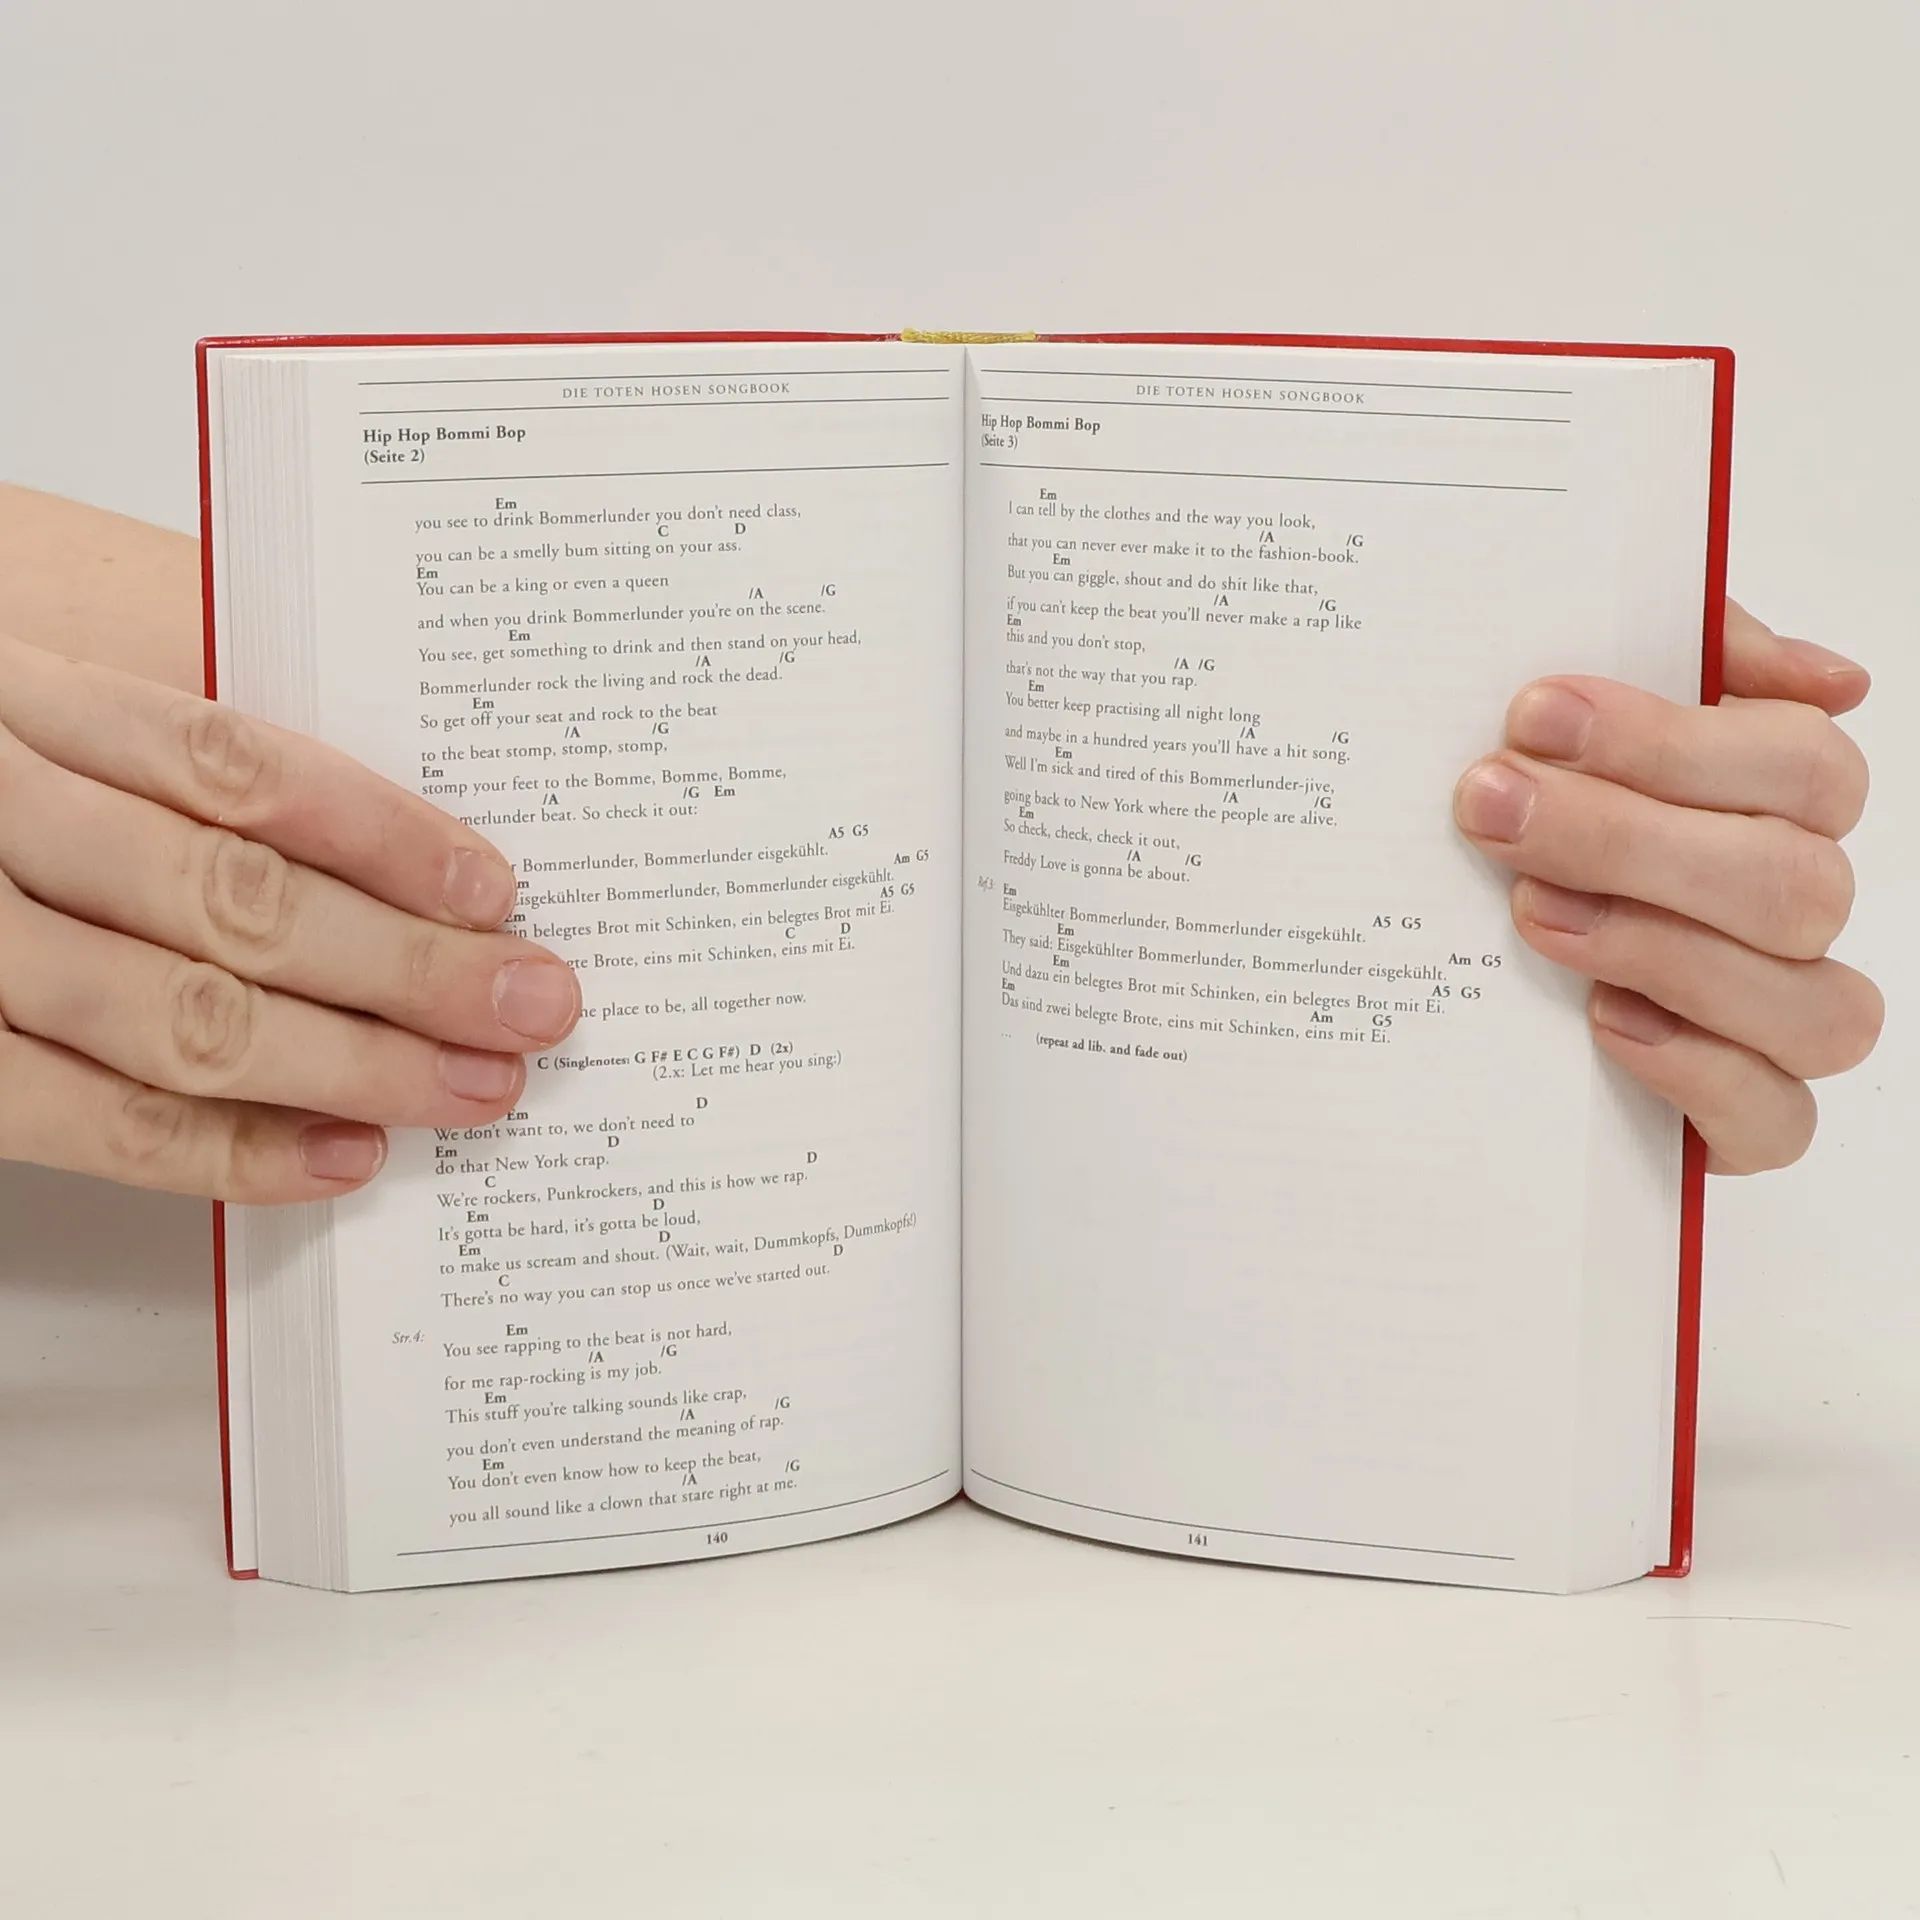 DIE TOTEN HOSEN SONGBOOK
Hip Hop Bommi Bop
(Seite 2)
Em
you see to drink Bommerlunder you don't need class,
C D
you can be a smelly bum sitting on your ass.
Em
You can be a king or even a queen
/A /G
and when you drink Bommerlunder you're on the scene.
Em
You see, get something to drink and then stand on your head,
/A /G
Bommerlunder rock the living and rock the dead.
Em
So get off your seat and rock to the beat
/A /G
to the beat stomp, stomp, stomp,
Em
stomp your feet to the Bomme, Bomme, Bomme,
/A /G Em
beat. So check it out:
A5 G5
Bommerlunder, Bommerlunder eisgekühlt.
Am G5
Eisgekühlter Bommerlunder, Bommerlunder eisgekühlt.
Em A5 G5
belegtes Brot mit Schinken, ein belegtes Brot mit Ei.
C D
Brote, eins mit Schinken, eins mit Ei.
place to be, all together now.
C (Singlenotes: G F# E C G F#) D (2x)
(2.x: Let me hear you sing:)
Em D
We don't want to, we don't need to
Em D
do that New York crap.
C D
We're rockers, Punkrockers, and this is how we rap.
Em D
It's gotta be hard, it's gotta be loud,
Em D
to make us scream and shout. (Wait, wait, Dummkopfs, Dummkopfs!)
C D
There's no way you can stop us once we've started out.
Str. 4:
Em
You see rapping to the beat is not hard,
/A /G
for me rap-rocking is my job.
Em
This stuff you're talking sounds like crap,
/A /G
you don't even understand the meaning of rap.
Em
You don't even know how to keep the beat,
/A /G
you all sound like a clown that stare right at me.
140
DIE TOTEN HOSEN SONGBOOK
Hip Hop Bommi Bop
(Seite 3)
Em
I can tell by the clothes and the way you look,
/A /G
that you can never ever make it to the fashion-book.
Em
But you can giggle, shout and do shit like that,
/A /G
if you can't keep the beat you'll never make a rap like
Em
this and you don't stop,
/A /G
that's not the way that you rap.
Em
You better keep practising all night long
/A /G
and maybe in a hundred years you'll have a hit song.
Em
Well I'm sick and tired of this Bommerlunder-jive,
/A /G
going back to New York where the people are alive.
Em
So check, check, check it out,
/A /G
Freddy Love is gonna be about.
Ref.3:
Em A5 G5
Eisgekühlter Bommerlunder, Bommerlunder eisgekühlt.
Em Am G5
They said: Eisgekühlter Bommerlunder, Bommerlunder eisgekühlt.
Em A5 G5
Und dazu ein belegtes Brot mit Schinken, ein belegtes Brot mit Ei.
Em Am G5
Das sind zwei belegte Brote, eins mit Schinken, eins mit Ei.
... (repeat ad lib. and fade out)
141